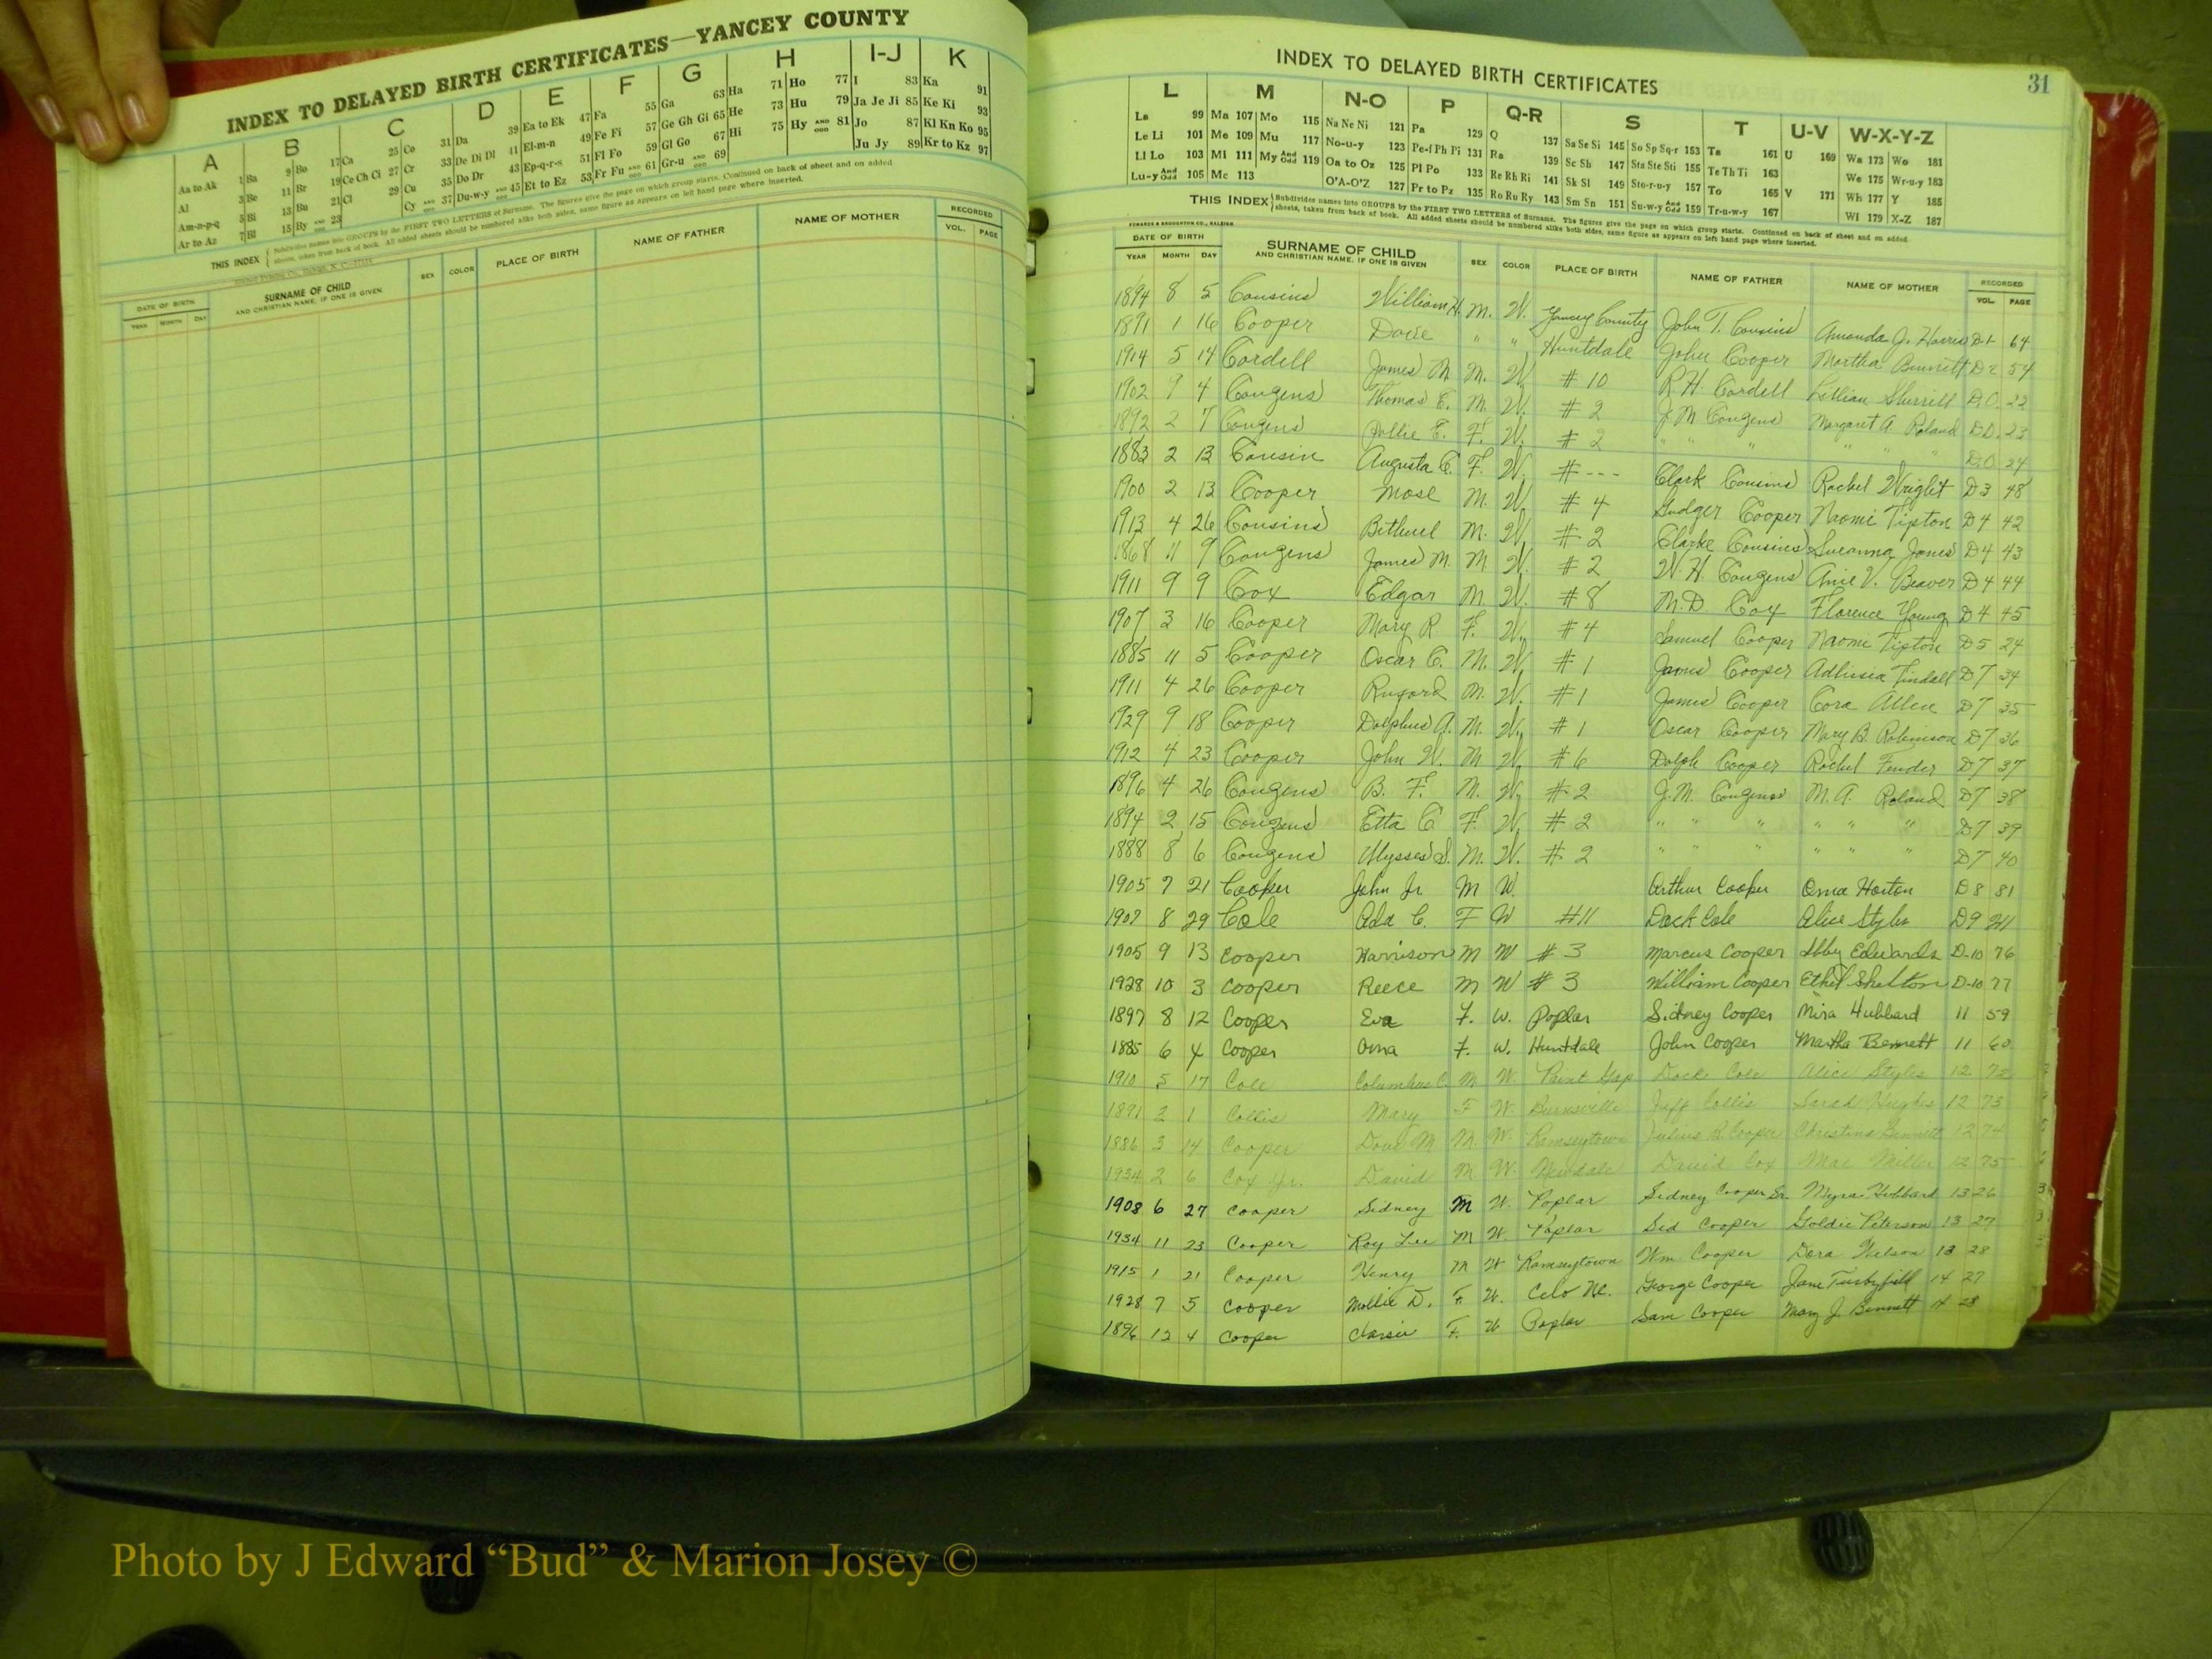 INDEX TO DELAYED BIRTH CERTIFICATES—YANCEY COUNTY
A B C D E F G H I-J K
Aa to Ak 1 Ba 9 Bo 17 Ca 25 Co 31 Da 39 Ea to Ek 47 Fa 55 Ga 63 Ha 71 Ho 77 I 83 Ka 91
Al 3 Be 11 Br 19 Ce Ch Ci 27 Cr 33 De Di Dl 41 El-m-n 49 Fe Fi 57 Ge Gh Gi 65 He 73 Hu 79 Ja Je Ji 85 Ke Ki 93
Am-n-p-q 5 Bi 13 Bu 21 Cl 29 Cu 35 Do Dr 43 Ep-q-r-s 51 Fl Fo 59 Gl Go 67 Hi 75 Hy AND ODD 81 Jo 87 Kl Kn Ko 95
Ar to Az 7 Bl 15 By AND 23 Cy AND ODD 37 Du-w-y AND 45 Et to Ez 53 Fr Fu AND ODD 61 Gr-u AND ODD 69 Ju Jy 89 Kr to Kz 97
THIS INDEX { Subdivides names into GROUPS by the FIRST TWO LETTERS of Surname. The figures give the page on which group starts. Continued on back of sheet and on added
sheets, taken from back of book. All added sheets should be numbered alike both sides, same figure as appears on left hand page where inserted.
DATE OF BIRTH SURNAME OF CHILD SEX COLOR PLACE OF BIRTH NAME OF FATHER NAME OF MOTHER RECORDED
YEAR MONTH DAY AND CHRISTIAN NAME, IF ONE IS GIVEN VOL. PAGE
INDEX TO DELAYED BIRTH CERTIFICATES 31
L M N-O P Q-R S T U-V W-X-Y-Z
La 99 Ma 107 Mo 115 Na Ne Ni 121 Pa 129 Q 137 Sa Se Si 145 So Sp Sq-r 153 Ta 161 U 169 Wa 173 Wo 181
Le Li 101 Me 109 Mu 117 No-u-y 123 Pe-f Ph Pi 131 Ra 139 Sc Sh 147 Sta Ste Sti 155 Te Th Ti 163 We 175 Wr-u-y 183
Ll Lo 103 Mi 111 My And Odd 119 Oa to Oz 125 Pl Po 133 Re Rh Ri 141 Sk Sl 149 Sto-r-u-y 157 To 165 V 171 Wh 177 Y 185
Lu-y And Odd 105 Mc 113 O'A-O'Z 127 Pr to Pz 135 Ro Ru Ry 143 Sm Sn 151 Su-w-y And Odd 159 Tr-u-w-y 167 Wi 179 X-Z 187
THIS INDEX { Subdivides names into GROUPS by the FIRST TWO LETTERS of Surname. The figures give the page on which group starts. Continued on back of sheet and on added
sheets, taken from back of book. All added sheets should be numbered alike both sides, same figure as appears on left hand page where inserted.
EDWARDS & BROUGHTON CO., RALEIGH
DATE OF BIRTH SURNAME OF CHILD SEX COLOR PLACE OF BIRTH NAME OF FATHER NAME OF MOTHER RECORDED
YEAR MONTH DAY AND CHRISTIAN NAME, IF ONE IS GIVEN VOL. PAGE
1894 8 5 Cousins William H. M. W. Yancey County John T. Cousins Amanda J. Harris D-1 64
1891 1 16 Cooper Dove " " Huntdale John Cooper Martha Bennett D2 54
1914 5 14 Cordell James M M. W # 10 R.H. Cordell Lillian Sherrill D.O. 22
1902 9 4 Cougens Thomas E. M. W. # 2 J.M. Cougens Margaret A. Roland D.O. 23
1892 2 7 Cougens Pollie E. F. W. # 2 " " " " " " D.O 24
1883 2 13 Cousin Augusta C. F. W. #--- Clark Cousins Rachel Wright D3 48
1900 2 13 Cooper Mose M. W. # 4 Gudger Cooper Naomi Tipton D4 42
1913 4 26 Cousins Bethuel M. W. # 2 Clarke Cousins Sueanna Jones D4 43
1868 11 9 Cougens James M. M. W. # 2 W.H. Cougens Anie V. Beaver D4 44
1911 9 9 Cox Edgar M W. # 8 M.D. Cox Florence Young D4 45
1907 3 16 Cooper Mary R F. W. # 4 Samuel Cooper Naomi Tipton D5 24
1885 11 5 Cooper Oscar C. M. W. # 1 James Cooper Tindall D7 34
1911 4 26 Cooper M. W. # 1 James Cooper Cora Allen D7 35
1929 9 18 Cooper Dolphus A. M. W. # 1 Oscar Cooper Mary B. Robinson D7 36
1912 4 23 Cooper John W. M W. # 6 Dolph Cooper Rachel Fender D7 37
1896 4 26 Cougens B. F. M. W. # 2 J.M. Cougens M.A. Roland D7 38
1894 2 15 Cougens Etta C F. W. # 2 " " " " " " D7 39
1888 8 6 Cougens Ulysses S. M. W. # 2 " " " " " " D7 40
1905 7 21 Cooper John Jr M W. Arthur Cooper Oma Horton D8 81
1907 8 29 Cole Ada C. F W #11 Dock Cole Alice Styles D9
1905 9 13 Cooper Harrison M W # 3 Marcus Cooper Abby Edwards D-10 76
1928 10 3 Cooper Reece M W # 3 William Cooper Ethel Shelton D-10 77
1897 8 12 Cooper Eva F. W. Poplar Sidney Cooper Mira Hubbard 11 59
1885 6 4 Cooper Oma F. W. Huntdale John Cooper Martha Bennett 11 60
1910 5 17 Cole Columbus C. M W. Paint Gap Dock Cole Alice Styles 12 72
1891 2 1 Collis Mary F W. Burnsville Jeff Collis Sarah Hughes 12 73
1886 3 14 Cooper Dove M M. W. Ramseytown Julius B. Cooper Christina Bennett 12 74
1934 2 6 Cox Jr. David M. W. Newdale David Cox Mae Miller 12 75
1908 6 27 Cooper Sidney M W. Poplar Sidney Cooper Sr. Myra Hubbard 13 26
1934 11 23 Cooper Roy Lee M W. Poplar Sid Cooper Goldie Peterson 13 27
1915 1 21 Cooper Henry M W Ramseytown Wm. Cooper Dora Nelson 13 28
1928 7 5 Cooper Mollie D. F. W. Celo NC. George Cooper Jane Turbyfill 14 27
1896 12 4 Cooper F. W Poplar Sam Cooper Mary J. Bennett 14 28
Photo by J Edward “Bud” & Marion Josey ©